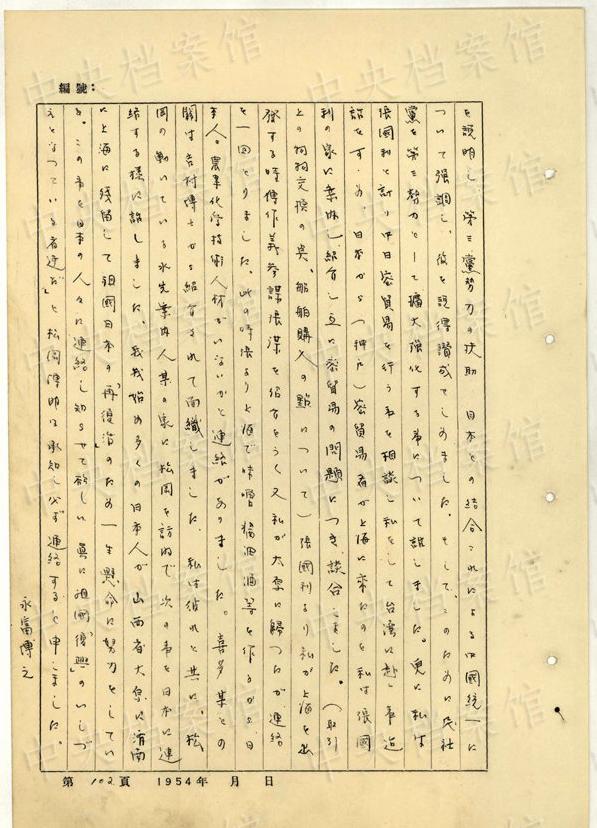 編號：
を説明し、第三黨勢力の扶助、日本との結合これによる中國統一に
ついて強調し、彼を説得賛成せしめました。そして、このために民社
黨を第三勢力として擴大強化する事について話しました。更に私は
張國利と計り中日密貿易を行う事を相談し私をして台湾に赴し
話をすゝめ、日本から（神戸）密貿易者が上海に来たのを私は張國
利の家に案内し紹介し互に密貿易の問題につき談合しました。（取引
上の物物交換の点、船舶購入の點について）張國利より私が上海を出
發する時傅作義参謀張某を紹介をうく又私が太原に歸つたが連絡
を一回とりました。此の時張より上海で味噌 酒等を作るから日
本人の農業化学技術人材がいないかと連絡がありました。喜多某との
關は吉村博士から紹介されて面識しました。私は彼れと共に、松
岡の働いている水先案内人某の家に松岡を訪ねて次の事を日本に連
絡する様に話しました。我我始め多くの日本人が山西省太原に済南
に上海に残留して祖國日本の「再復活」のため一生懸命に努力をしてい
る。この事を日本の人々に連絡し知らせて欲しい 眞に祖國「復興」のいしづ
えとなつている者達だ」と松岡博明は承知し必ず連絡すると申しました。
永富博之
第 102 頁 1954年 月 日
中央档案馆